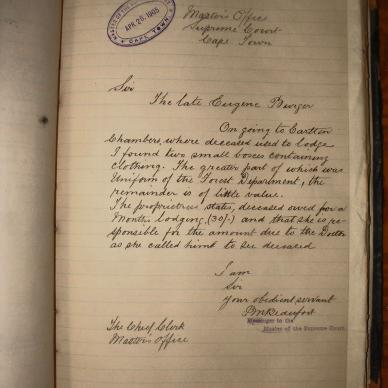 MASTER OF THE SUPREME COURT
APR 26 1905
CAPE TOWN
Master's Office
Supreme Court
Cape Town
Sir
The late Eugene Burger
On going to Carlton
Chambers, where deceased used to lodge
I found two small boxes containing
clothing. The greater part of which was
Uniform of the Forest Department, the
remainder is of little value.
The proprietress states, deceased owed for a
Months lodging (30/-) and that she is re-
sponsible for the amount due to the Doctor
as she called him to see deceased
I am
Sir
your obedient servant
Messenger to the
Master of the Supreme Court.
The Chief Clerk
Master's Office